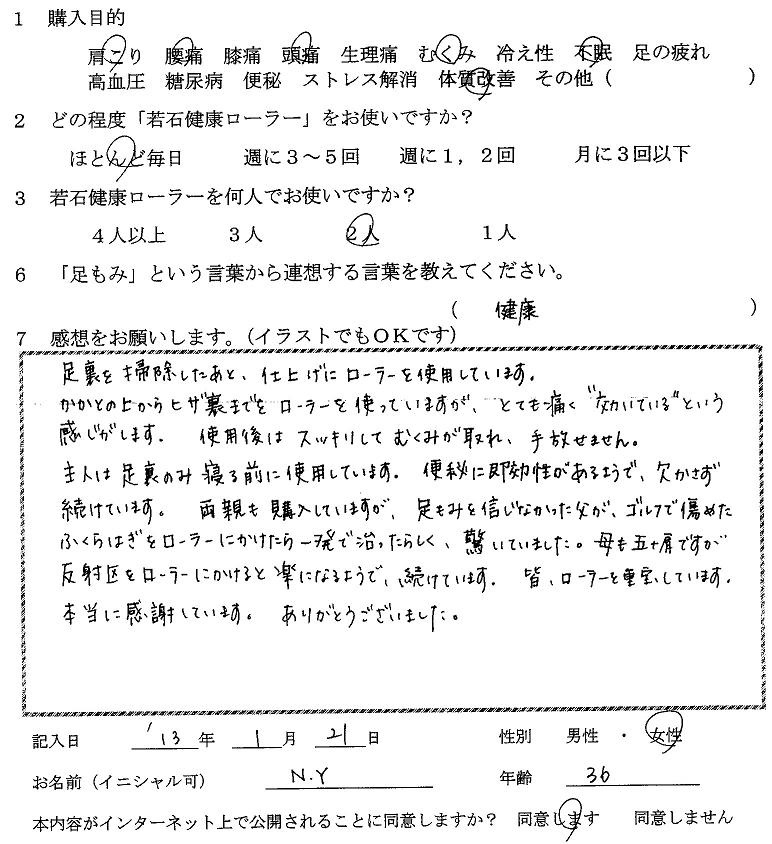 1 購入目的
肩こり 腰痛 膝痛 頭痛 生理痛 むくみ 冷え性 不眠 足の疲れ
高血圧 糖尿病 便秘 ストレス解消 体質改善 その他( )
2 どの程度「若石健康ローラー」をお使いですか?
ほとんど毎日 週に3~5回 週に1,2回 月に3回以下
3 若石健康ローラーを何人でお使いですか?
4人以上 3人 2人 1人
6 「足もみ」という言葉から連想する言葉を教えてください。
( 健康 )
7 感想をお願いします。(イラストでもOKです)
足裏を掃除したあと、仕上げにローラーを使用しています。
かかとの上からヒザ裏までをローラーを使っていますが、とても痛く"効いている"という
感じがします。 使用後はスッキリしてむくみが取れ、手放せません。
主人は足裏のみ寝る前に使用しています。 便秘に即効性があるようで、欠かさず
続けています。 両親も購入していますが、足もみを信じなかった父が、ゴルフで傷めた
ふくらはぎをローラーにかけたら一発で治ったらしく、驚いていました。母も五十肩ですが
反射区をローラーにかけると楽になるようで、続けています。 皆、ローラーを重宝しています。
本当に感謝しています。 ありがとうございました。
記入日 '13 年 1 月 21 日 性別 男性 ・ 女性
お名前(イニシャル可) N.Y 年齢 36
本内容がインターネット上で公開されることに同意しますか? 同意します 同意しません